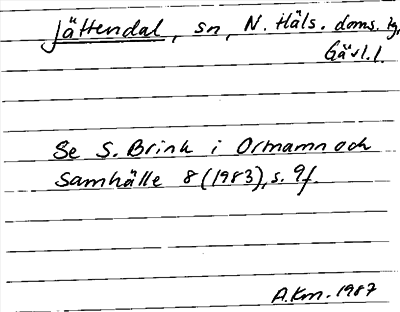 Jättendal, sn, N. Häls. doms. tg,
Gävl. l.
Se S. Brink i Ortnamn och
Samhälle 8 (1983), s. 9f.
A.Km. 1987